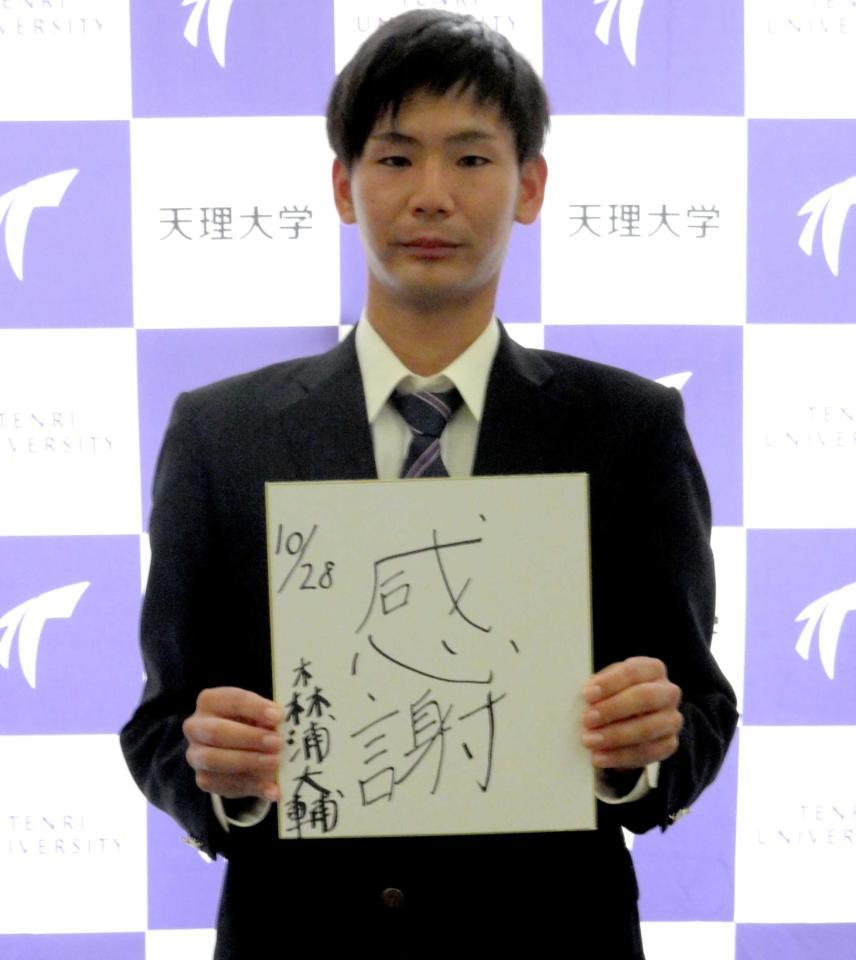 TENRI
UNIVERSITY
UNIVERSITY
TENRI
UNIVERSITY
天理大学
天理大学
TENRI
UNIVERSITY
TENRI
UNIVERSITY
10/28
感謝
森浦大輔
TENRI
UNIVERSITY
TENRI
UNIVERSITY